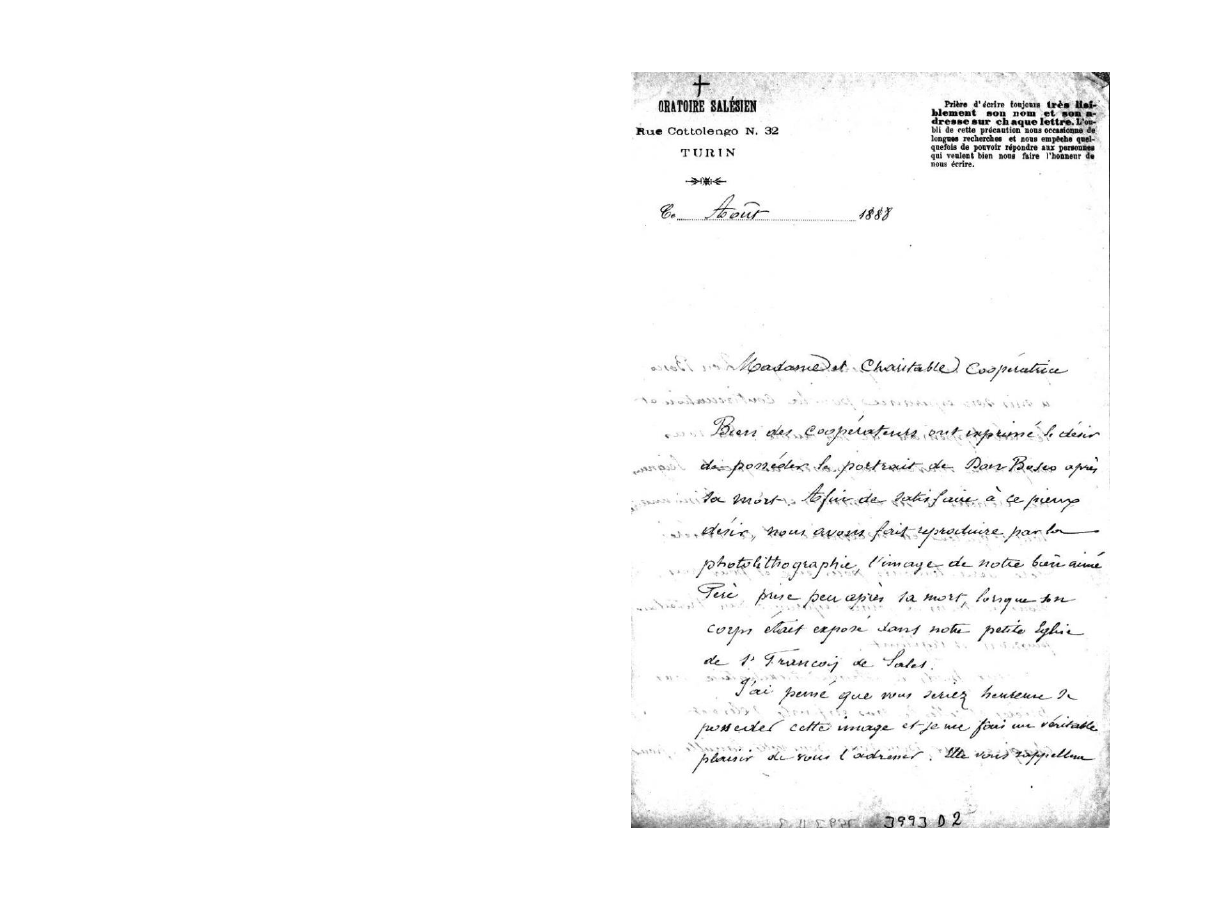 ORATOIRE SALÉSIEN
Rue Cottolengo N. 32
TURIN
Prière d'écrire toujours très lisi-
blement son nom et son a-
dresse sur chaque lettre. L'ou-
bli de cette précaution nous occasionne de
longues recherches et nous empêche quel-
quefois de pouvoir répondre aux personnes
qui veulent bien nous faire l'honneur de
nous écrire.
Août 1888
Madame et Charitable Coopératrice
Bien des coopérateurs ont exprimé le désir
de posséder le portrait de Don Bosco après
sa mort. Afin de satisfaire à ce pieux
désir, nous avons fait reproduire par la
photolithographie, l'image de notre bien aimé
Père prise peu après sa mort, lorsque son
corps était exposé dans notre petite Eglise
de St François de Sales.
J'ai pensé que vous seriez heureuse de
posseder cette image et je me fais un véritable
plaisir de vous l'adresser. Elle vous rappellera
3993 D 2